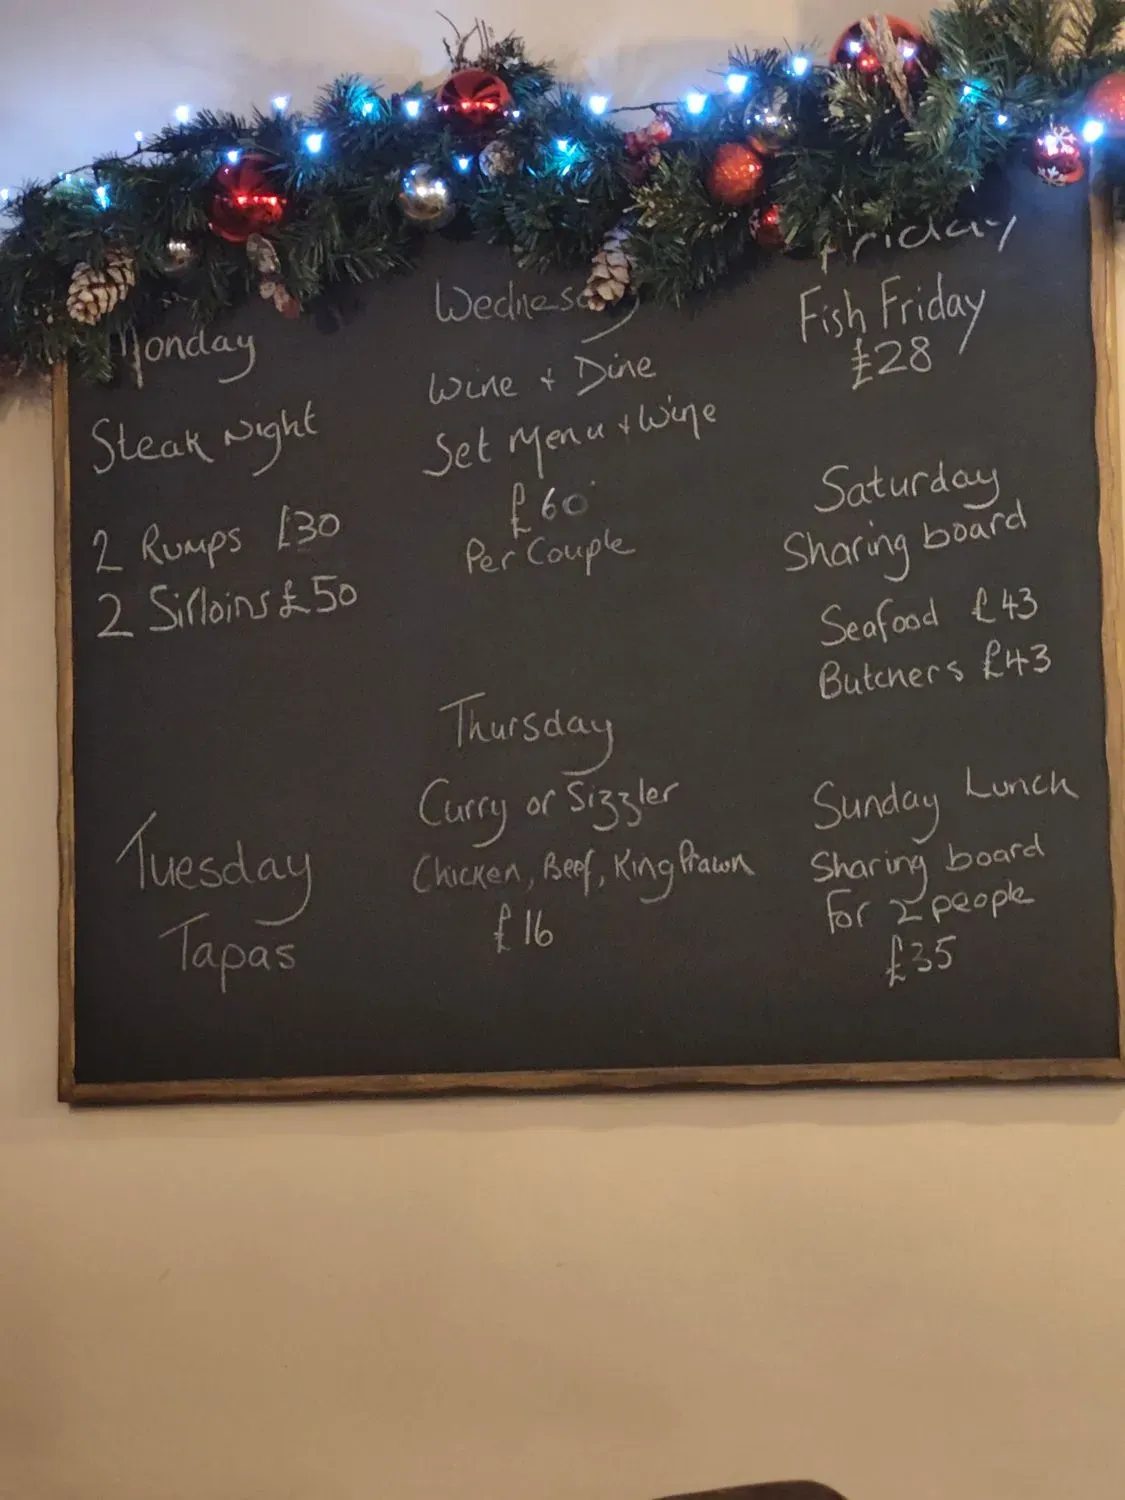 Monday
Steak Night
2 Rumps £30
2 Sirloins £50
Tuesday
Tapas
Wednesday
Wine + Dine
Set Menu + Wine
£60
Per Couple
Thursday
Curry or Sizzler
Chicken, Beef, King Prawn
£16
Friday
Fish Friday
£28
Saturday
Sharing board
Seafood £43
Butchers £43
Sunday Lunch
Sharing board
For 2 people
£35